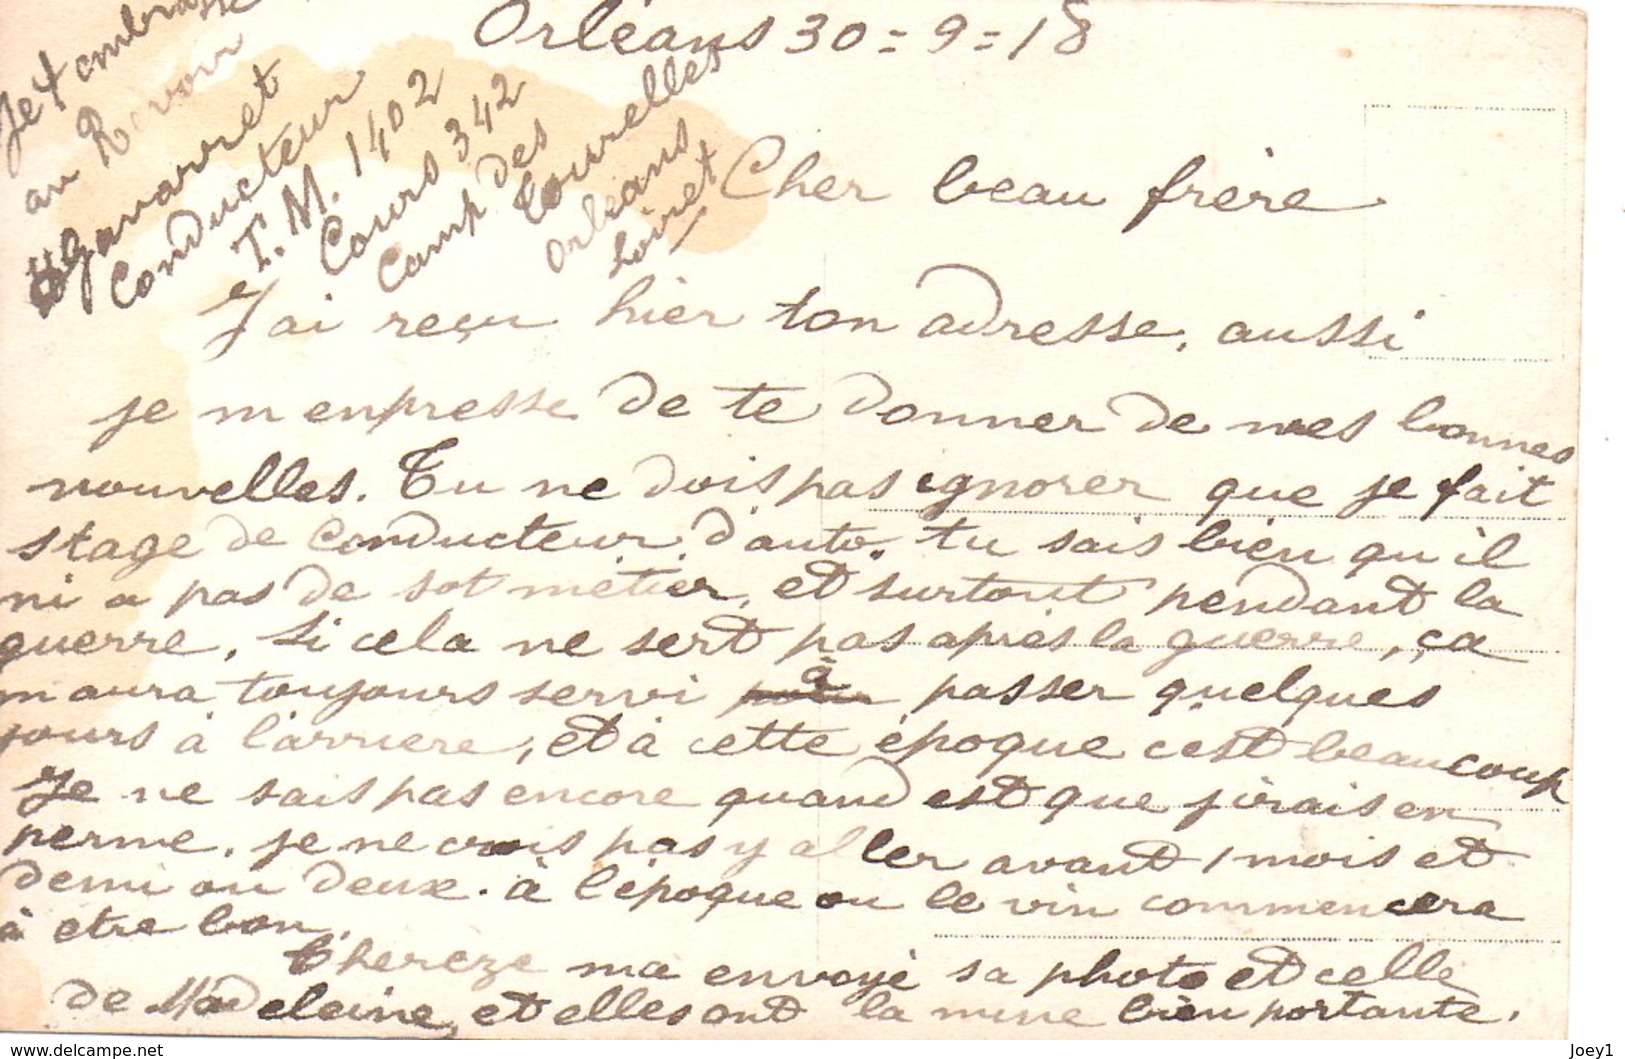 Orléans 30=9=18
Cher beau frère
J'ai reçu hier ton adresse, aussi
je m enpresse de te donner de mes bonnes
nouvelles. Tu ne dois pas ignorer que je fait
stage de conducteur d'auto. tu sais bien qu il
ni a pas de sot métier, et surtout pendant la
guerre, si cela ne sert pas après la guerre, ça
m aura toujours servi à passer quelques
jours à l'arriere, et à cette époque c'est beaucoup
Je ne sais pas encore quand est que j'irais en
perme, je ne crois pas y aller avant 1 mois et
demi ou deux. à l'époque ou le vin commencera
à etre bon.
Thereze ma envoyé sa photo et celle
de Madeleine, et elles ont la mine bien portante.
Je t embrasse
au Revoir
Conducteur
T.M. 1402
Cours 342
Camp des
Tourelles
Orléans
Loiret
www.delcampe.net
Joey1